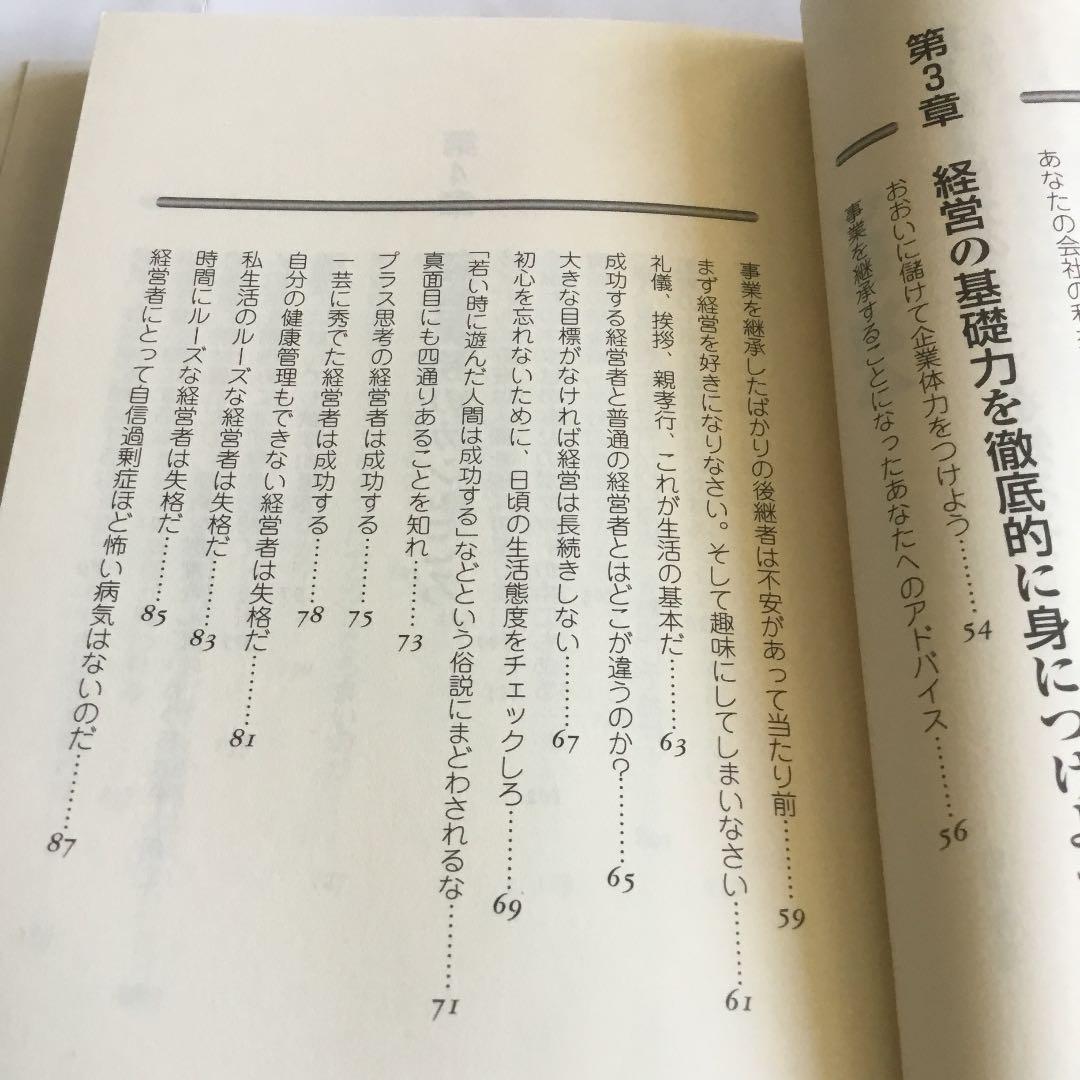 あなたの会社の
第3章 経営の基礎力を徹底的に身につけ
おおいに儲けて企業体力をつけよう………54
事業を継承することになったあなたへのアドバイス………56
事業を継承したばかりの後継者は不安があって当たり前………59
まず経営を好きになりなさい。そして趣味にしてしまいなさい………61
礼儀、挨拶、親孝行、これが生活の基本だ………63
成功する経営者と普通の経営者とはどこが違うのか?………65
大きな目標がなければ経営は長続きしない………67
初心を忘れないために、日頃の生活態度をチェックしろ………69
「若い時に遊んだ人間は成功する」などという俗説にまどわされるな………71
真面目にも四通りあることを知れ………73
プラス思考の経営者は成功する………75
一芸に秀でた経営者は成功する………78
自分の健康管理もできない経営者は失格だ………81
私生活のルーズな経営者は失格だ………83
時間にルーズな経営者は失格だ………85
経営者にとって自信過剰症ほど怖い病気はないのだ………87